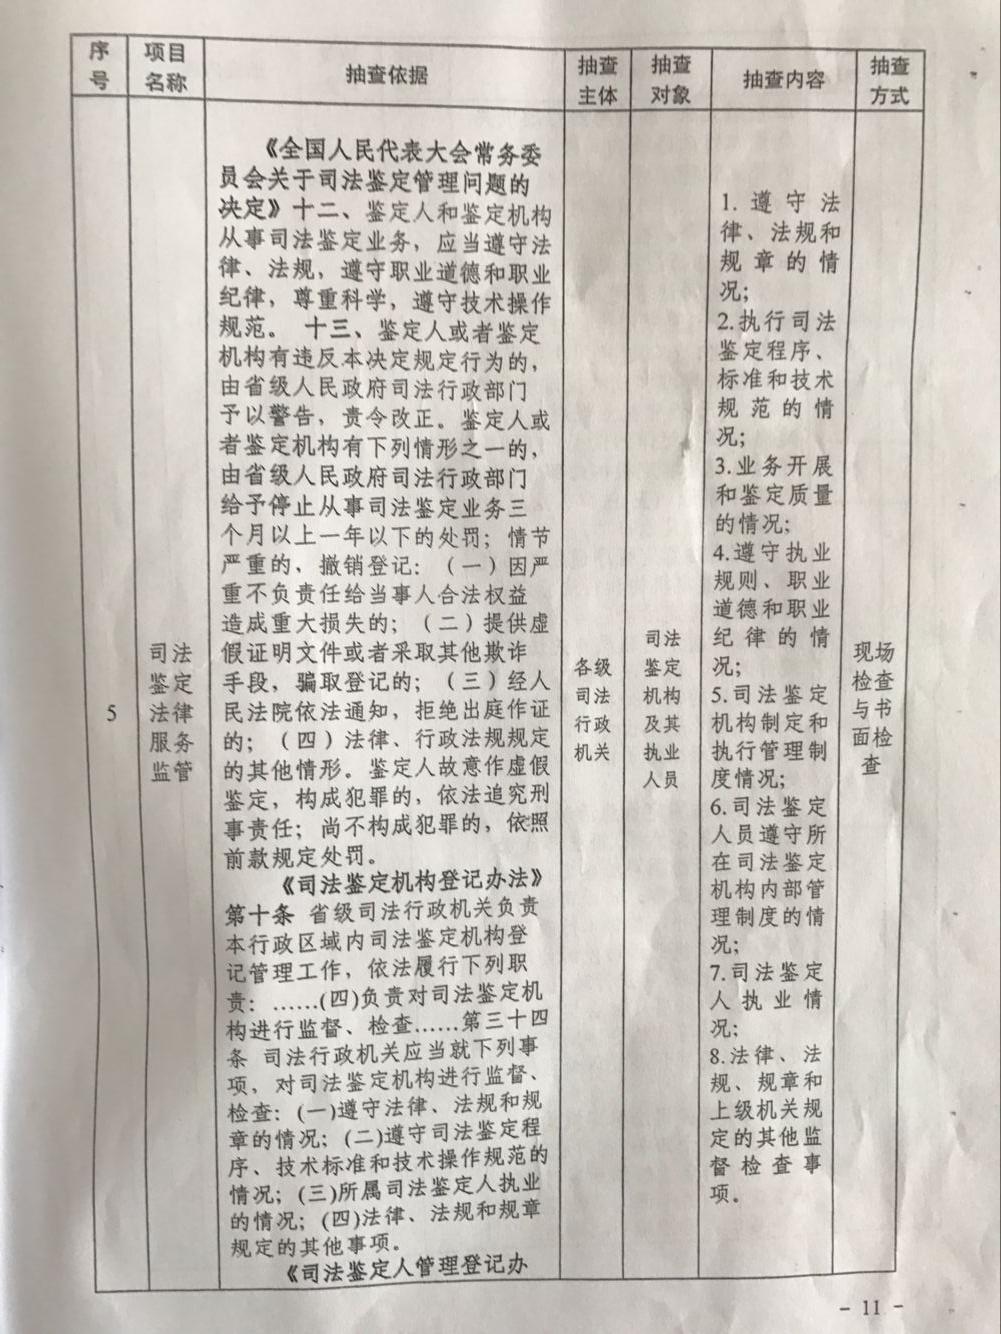 序号
项目名称
抽查依据
抽查主体
抽查对象
抽查内容
抽查方式
5
司法
鉴定
法律
服务
监管
《全国人民代表大会常务委
员会关于司法鉴定管理问题的
决定》十二、鉴定人和鉴定机构
从事司法鉴定业务，应当遵守法
律、法规，遵守职业道德和职业
纪律，尊重科学，遵守技术操作
规范。 十三、鉴定人或者鉴定
机构有违反本决定规定行为的，
由省级人民政府司法行政部门
予以警告，责令改正。鉴定人或
者鉴定机构有下列情形之一的，
由省级人民政府司法行政部门
给予停止从事司法鉴定业务三
个月以上一年以下的处罚；情节
严重的，撤销登记：（一）因严
重不负责任给当事人合法权益
造成重大损失的；（二）提供虚
假证明文件或者采取其他欺诈
手段，骗取登记的；（三）经人
民法院依法通知，拒绝出庭作证
的；（四）法律、行政法规规定
的其他情形。鉴定人故意作虚假
鉴定，构成犯罪的，依法追究刑
事责任；尚不构成犯罪的，依照
前款规定处罚。
《司法鉴定机构登记办法》
第十条 省级司法行政机关负责
本行政区域内司法鉴定机构登
记管理工作，依法履行下列职
责：……(四)负责对司法鉴定机
构进行监督、检查……第三十四
条 司法行政机关应当就下列事
项，对司法鉴定机构进行监督、
检查：(一)遵守法律、法规和规
章的情况；(二)遵守司法鉴定程
序、技术标准和技术操作规范的
情况；(三)所属司法鉴定人执业
的情况；(四)法律、法规和规章
规定的其他事项。
《司法鉴定人管理登记办
各级
司法
行政
机关
司法
鉴定
机构
及其
执业
人员
1. 遵守法
律、法规和
规章的情
况；
2.执行司法
鉴定程序、
标准和技术
规范的情
况；
3.业务开展
和鉴定质量
的情况；
4.遵守执业
规则、职业
道德和职业
纪律的情
况；
5.司法鉴定
机构制定和
执行管理制
度情况；
6.司法鉴定
人员遵守所
在司法鉴定
机构内部管
理制度的情
况；
7.司法鉴定
人执业情
况；
8.法律、法
规、规章和
上级机关规
定的其他监
督检查事
项。
现场
检查
与书
面检
查
- 11 -